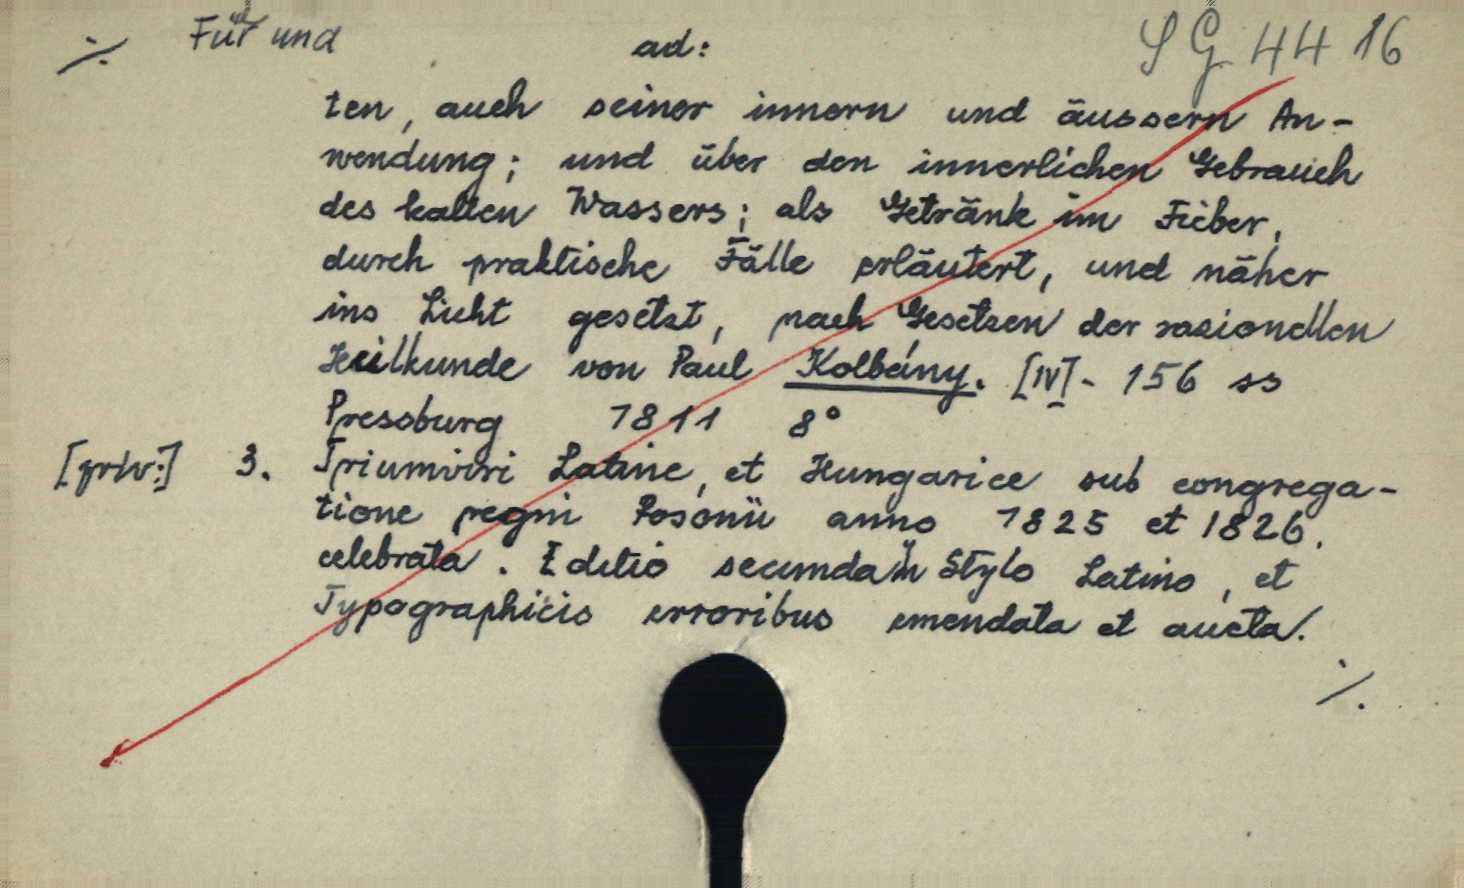 ·/. Für und ad: SG 44 16
ten, auch seiner innern und äussern An-
wendung; und über den innerlichen Gebrauch
des kalten Wassers; als Getränk im Fieber,
durch praktische Fälle erläutert, und näher
ins Licht gesetzt, nach Gesetzen der razionellen
Heilkunde von Paul Kolbány. [IV]- 156 ss
Pressburg 1811 8°
[priv:] 3. Triumviri Latine, et Hungarice sub congrega-
tione regni Posonii anno 1825 et 1826.
celebrata. Editio secunda in Stylo Latino, et
Typographicis erroribus emendata et aucta.
·/.